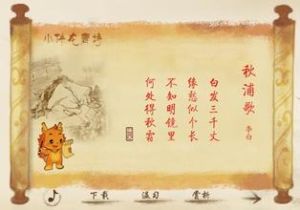 秋浦歌
李白
白发三千丈
缘愁似个长
不知明镜里
何处得秋霜
下载
温习
赏析